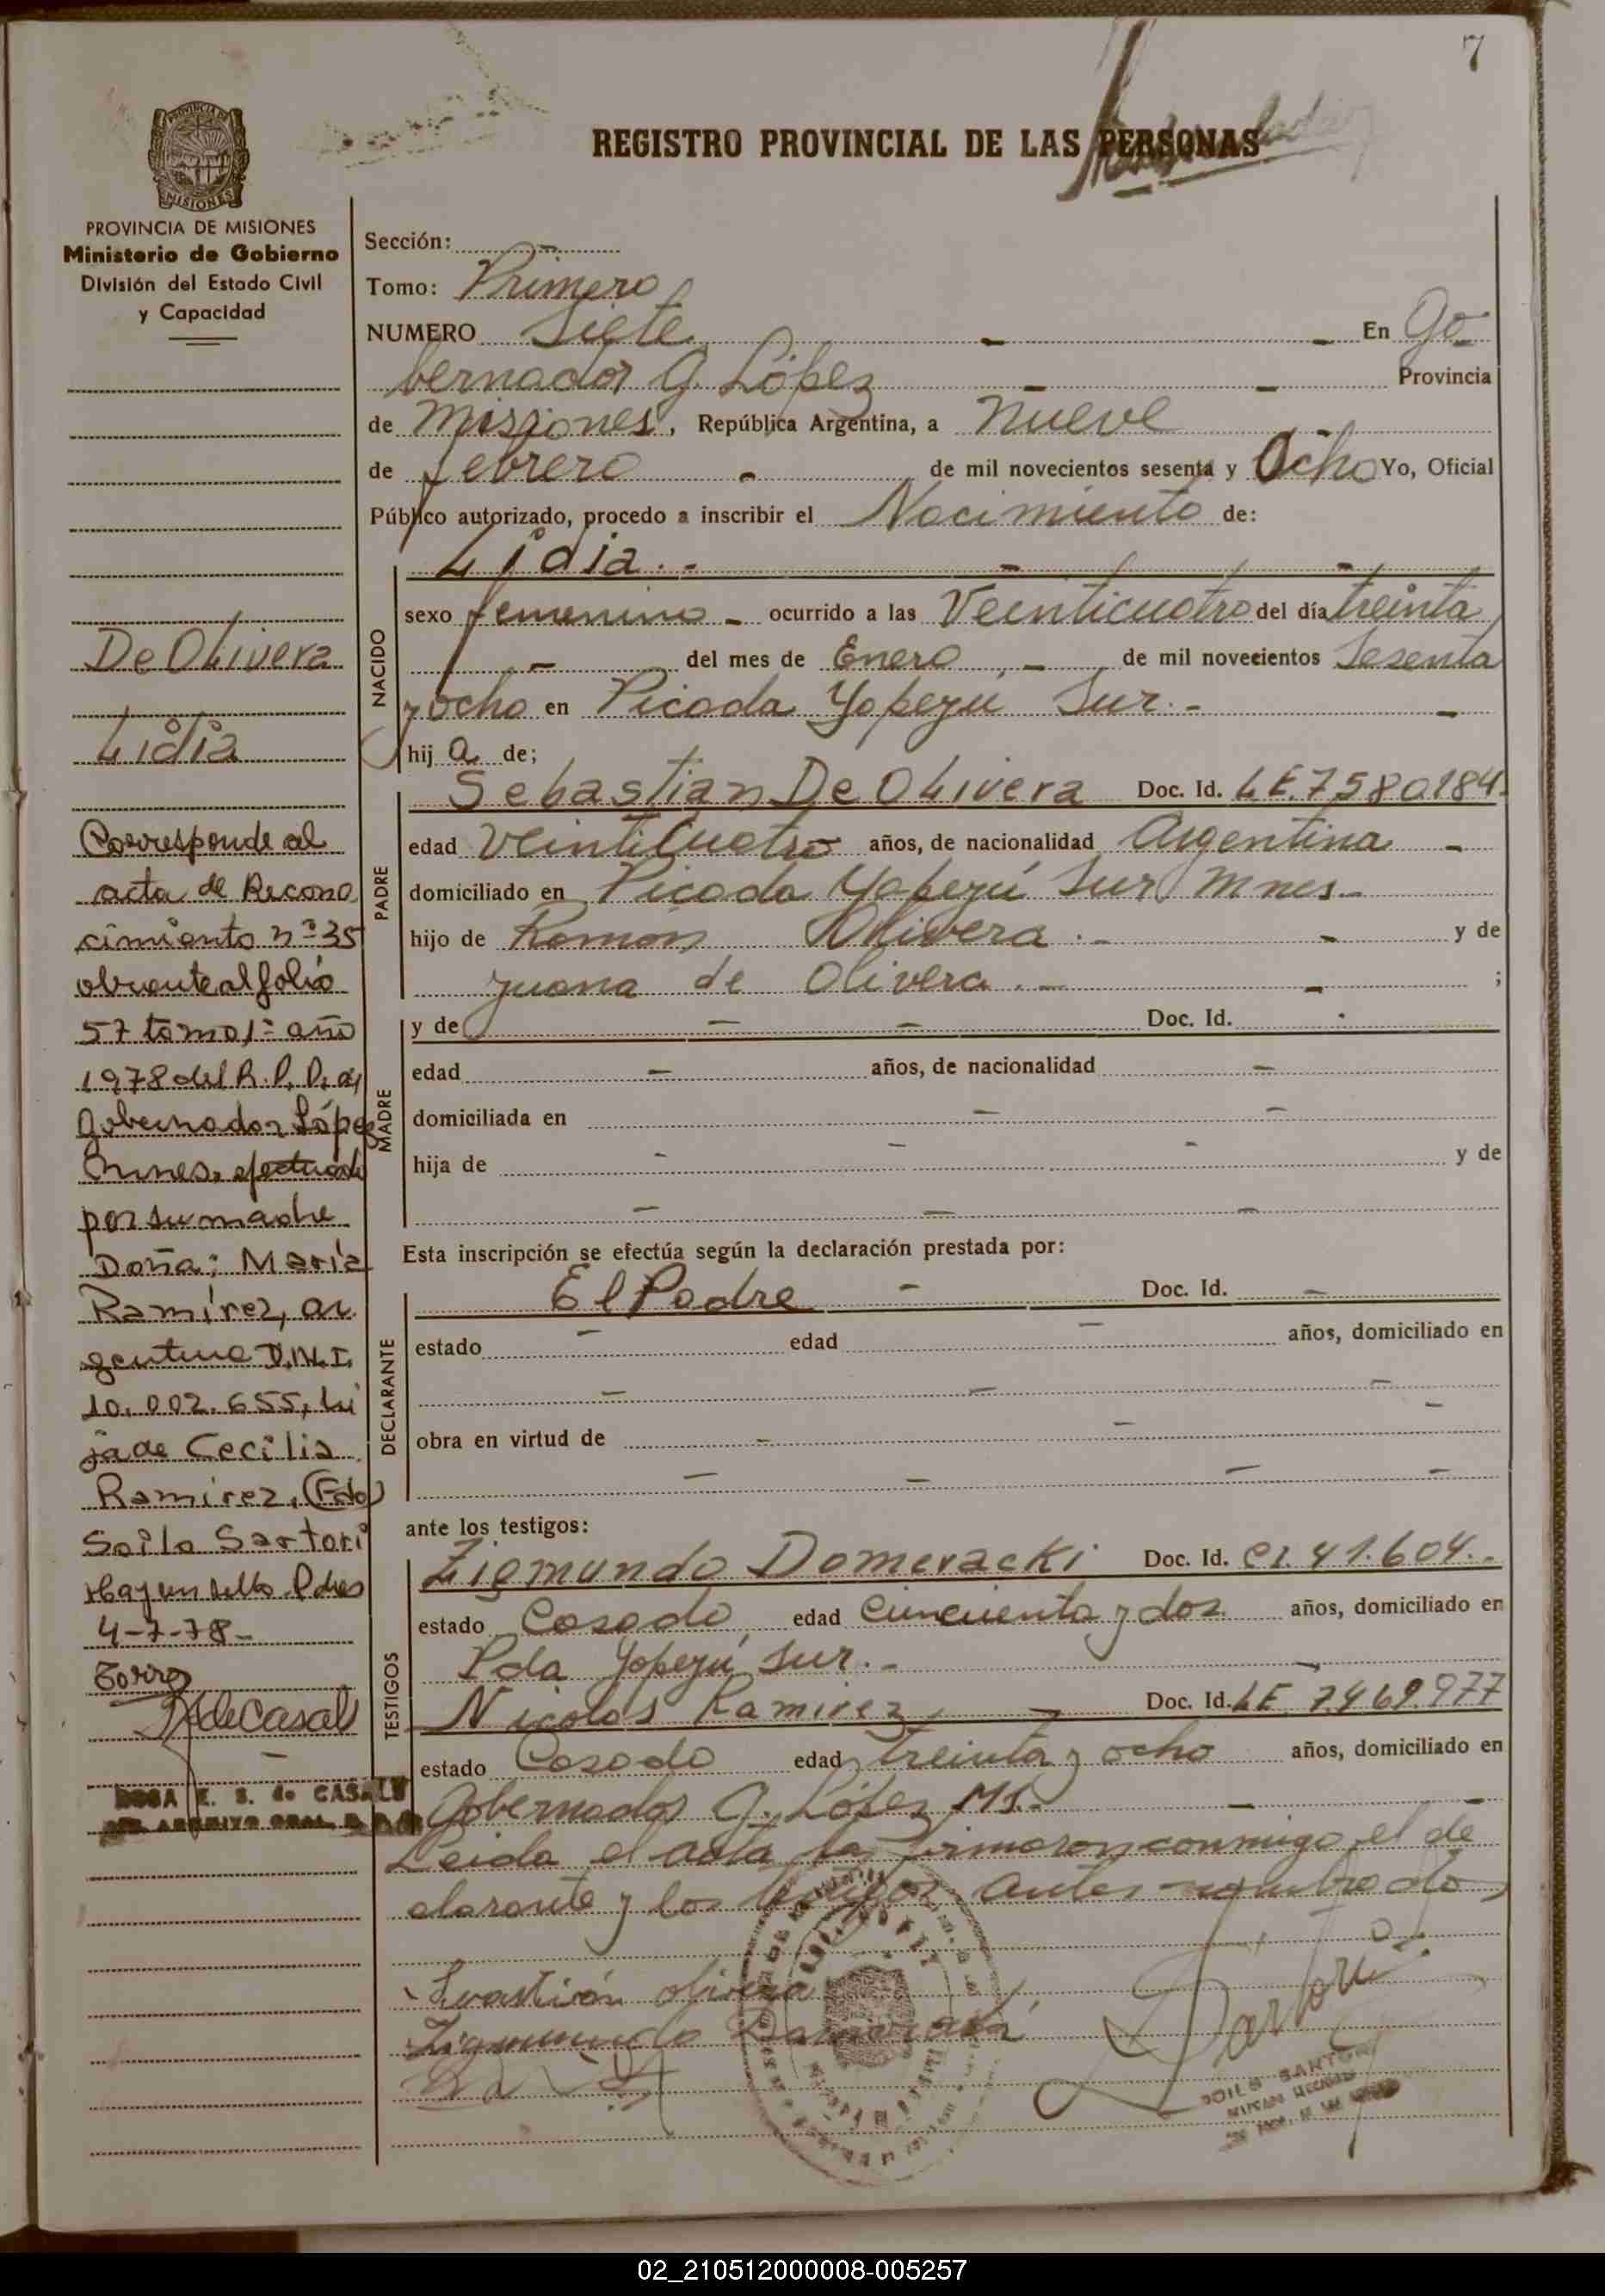 7
REGISTRO PROVINCIAL DE LAS PERSONAS
PROVINCIA DE
MISIONES
PROVINCIA DE MISIONES
Ministerio de Gobierno
División del Estado Civil
y Capacidad
De Olivera
Lidia
Corresponde al
acta de Recono
cimiento nº 35
obrante al folio
57 tomo 1º año
1978 del R.P.P. de
Gobernador López
Mnes. efectuado
por su madre
Doña: María
Ramírez, ar
gentina D.N.I.
10.002.655, hi
ja de Cecilia
Ramirez. (Fdo)
Soilo Sartori
Hay un sello. Pdas
4-7-78-
deCasal
ROSA E. S. de CASALS
Sección: -
Tomo: Primero
NUMERO Siete - - En Go
bernador G. López - - Provincia
de Misiones, República Argentina, a nueve
de febrero - de mil novecientos sesenta y Ocho Yo, Oficial
Público autorizado, procedo a inscribir el Nacimiento de:
Lidia. - - -
NACIDO
sexo femenino - ocurrido a las Veinticuatro del día treinta
- del mes de Enero - de mil novecientos Sesenta
y ocho en Picada Yapeyú Sur. - -
hij a de;
PADRE
Sebastian De Olivera Doc. Id. LE. 7580184.
edad Veinticuatro años, de nacionalidad Argentina -
domiciliado en Picada Yapeyú Sur Mnes. -
hijo de Ramón Olivera. - - y de
Juana de Olivera. - - ;
MADRE
y de - - Doc. Id. -
edad - años, de nacionalidad -
domiciliada en - -
hija de - - - y de
- - -
Esta inscripción se efectúa según la declaración prestada por:
DECLARANTE
El Padre - Doc. Id. -
estado - edad - años, domiciliado en
- - - -
obra en virtud de - -
- - - -
ante los testigos:
TESTIGOS
Zigmundo Domeracki Doc. Id. CI. 41.604..
estado Casado edad Cincuenta y dos años, domiciliado en
Pda Yapeyú Sur. - -
Nicolás Ramirez. - Doc. Id. LE 7.469.977
estado Casado edad treinta y ocho años, domiciliado en
Gobernador G. López Ms. - - -
Leida el acta la firmaron conmigo el de
clarante y los testigos antes nombrado
olivera
Zigmundo
Sartori
SOILO SARTORI
02_210512000008-005257